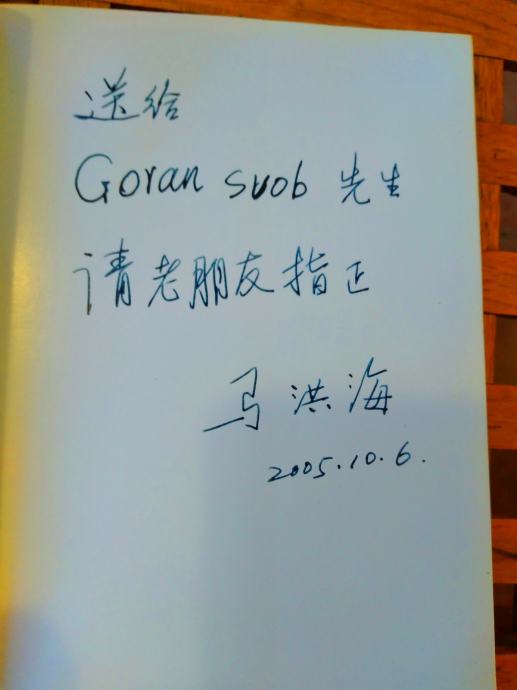 送给
Goran svob 先生
请老朋友指正
马洪海
2005.10.6.